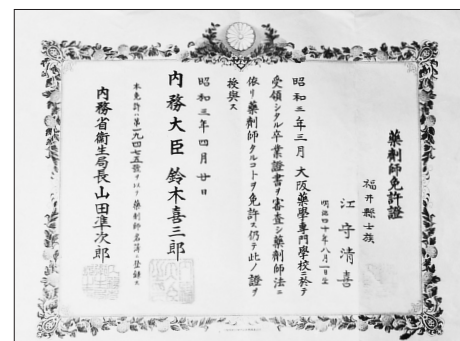 藥劑師免許證
福井縣士族
江守清喜
明治四十年八月一日生
昭和三年三月大阪藥學專門學校ニ於テ
受領シタル卒業證書ヲ審査シ藥劑師法ニ
依リ藥劑師タルコトヲ免許ス仍テ此ノ證ヲ
授與ス
昭和三年四月廿日
內務大臣 鈴木喜三郎
本免許ハ第一九四七五號ヲ以テ藥劑師名簿ニ登錄ス
內務省衞生局長山田準次郎